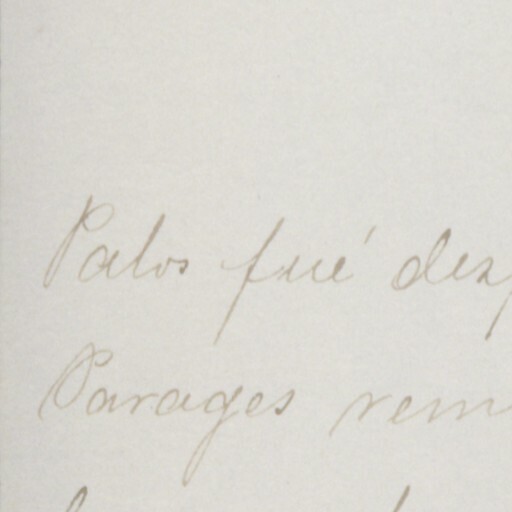 Palos fué desp
Parages rem